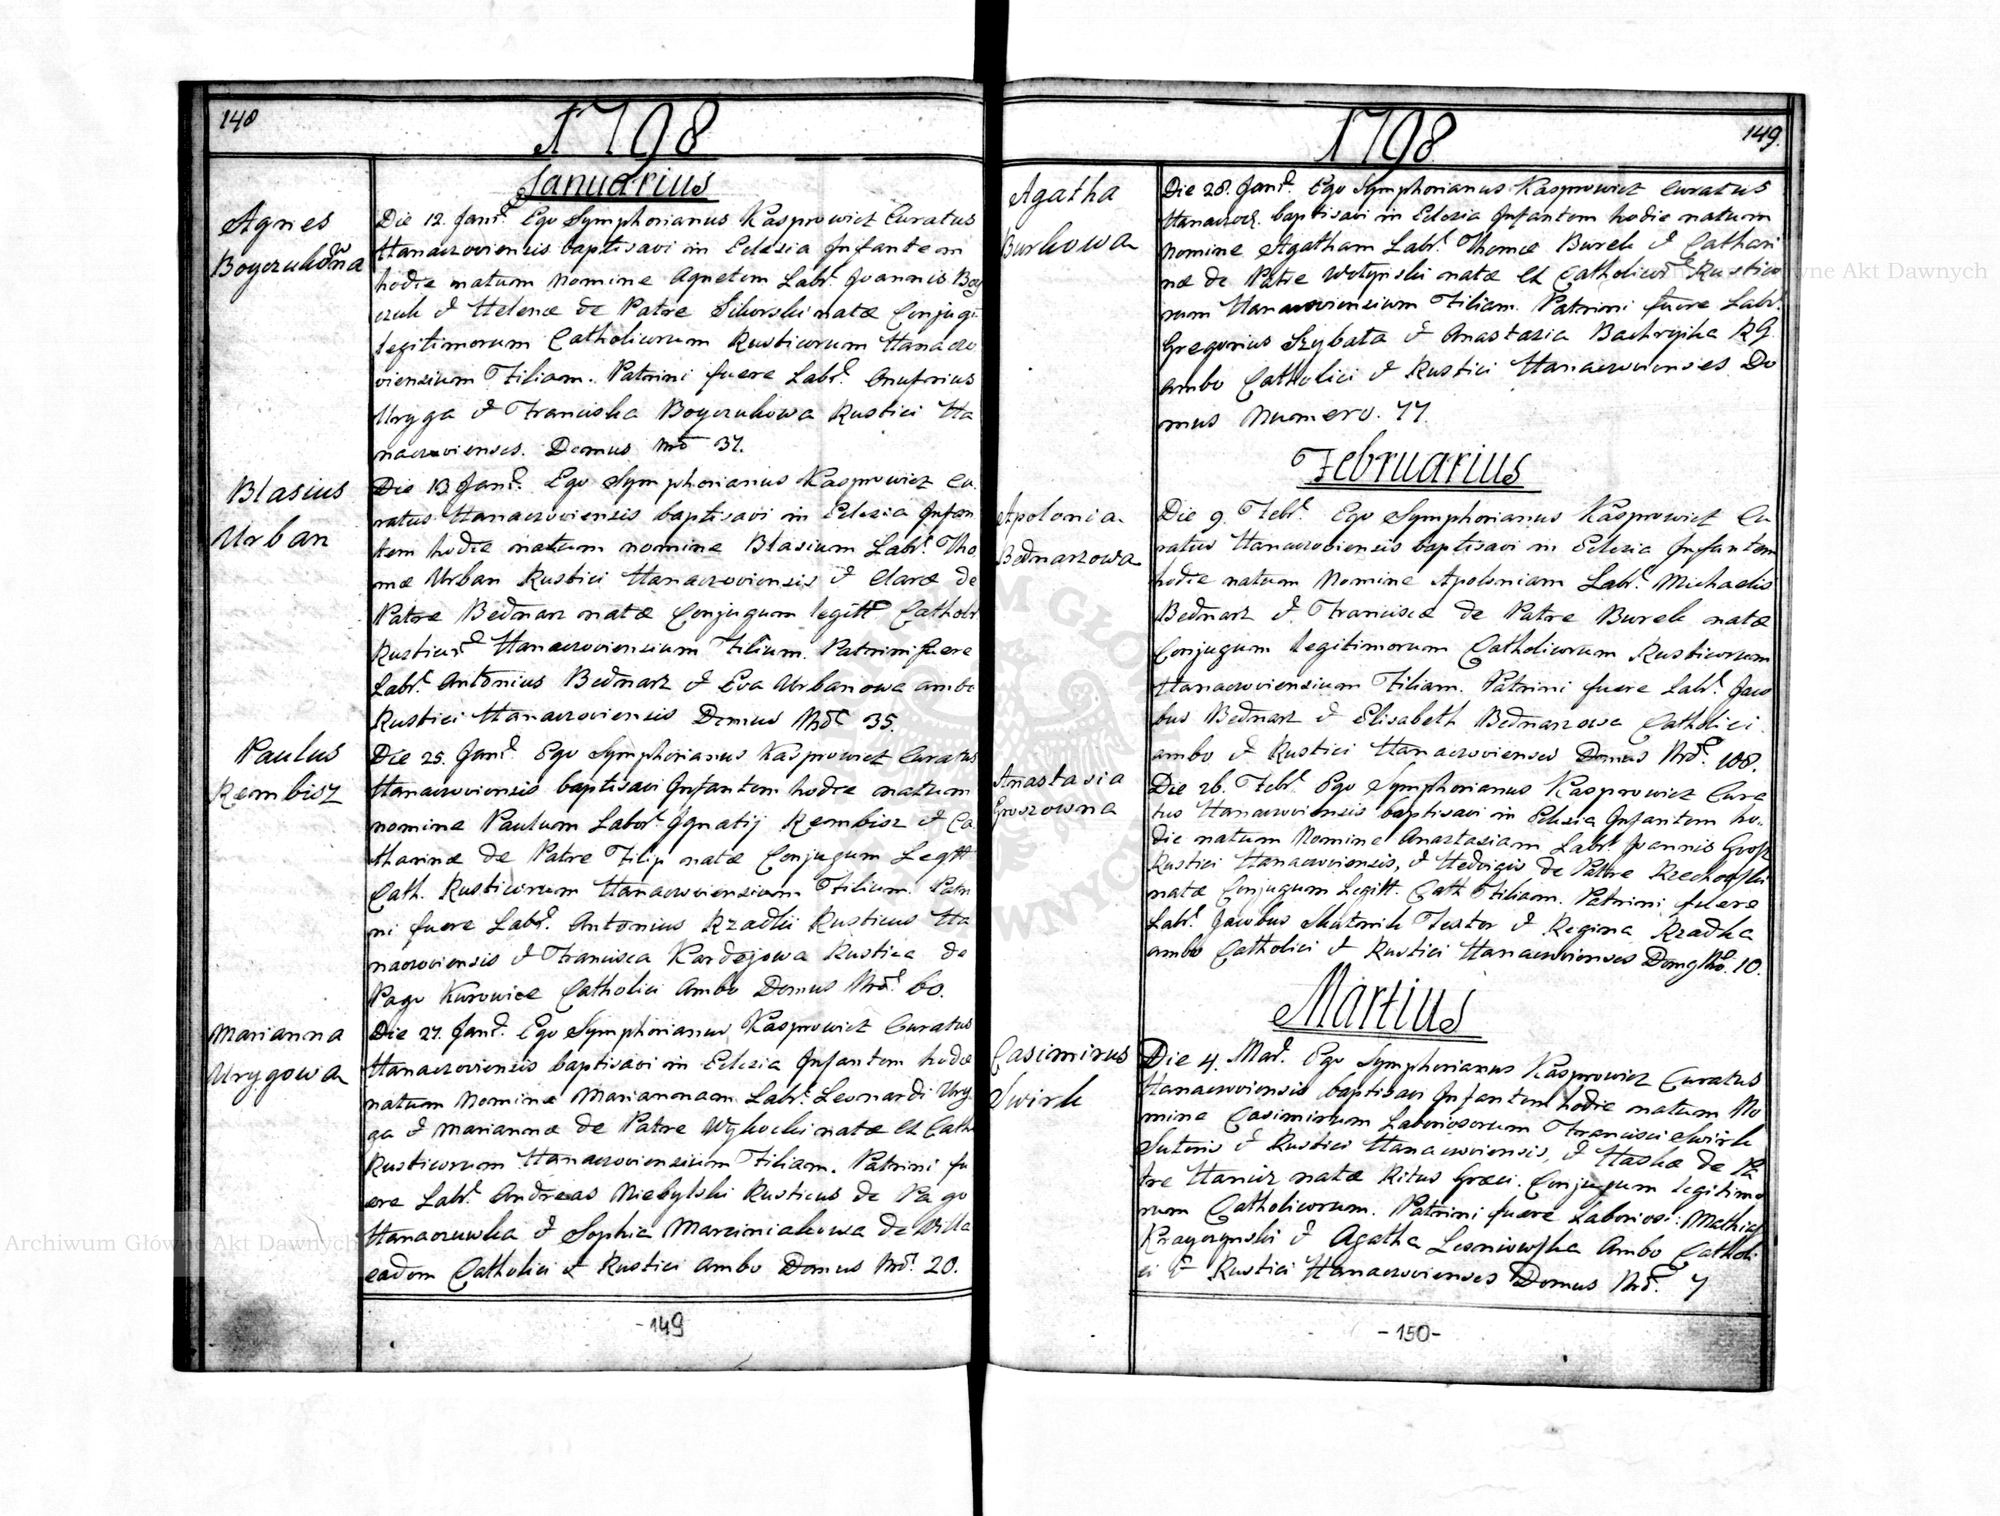 148
1798
Januarius
Agnes
Boyczukowna
Die 12. Janr. Ego Symphorianus Kasprowicz Curatus
Hanaczoviensis baptisavi in Eclesia Infantem
hodie natum Nomine Agnetem Labr. Joannis Boy
czuk & Helenæ de Patre Sikorski natæ Conjugũ
legitimorum Catholicorum Rusticorum Hanaczo
viensium Filiam. Patrini fuere Labr. Onufrius
Uryga & Franciska Boyczukowa Rustici Ha
naczovienses. Domus Nrõ 37.
Blasius
Urban
Die 13. Janr. Ego Symphorianus Kasprowicz Cu
ratus Hanaczoviensis baptisavi in Eclesia Infan
tem hodie natum nomine Blasium Labr. Tho
mæ Urban Rustici Hanaczoviensis & Claræ de
Patre Bednarz natæ Conjugum legitt Cathol
Rusticor Hanaczoviensium Filium. Patrini fuere
Labr. Antonius Bednarz & Eva Urbanowa ambo
Rustici Hanaczoviensis Domus Nrõ 35.
Paulus
Rembisz
Die 25. Janr. Ego Symphorianus Kasprowicz Curatus
Hanaczoviensis baptisavi Infantem hodie natum
nomine Paulum Labor. Ignatij Rembisz & Ca
tharinæ de Patre Filip natæ Conjugum Legitt
Cath. Rusticorum Hanaczoviensium Filium. Patri
ni fuere Labr. Antonius Rzadki Rusticus Ha
naczoviensis & Francisca Kardejowa Rustica de
Pago Kurowice Catholici Ambo Domus Nrõ. 60.
Marianna
Urygowa
Die 27. Janr. Ego Symphorianus Kasprowicz Curatus
Hanaczoviensis baptisavi in Eclesia Infantem hodie
natum Nomine Mariannam Labr. Leonardi Ury
ga & Mariannæ de Patre Wysocki natæ et Cath
Rusticorum Hanaczoviensium Filiam. Patrini fu
ere Labr. Andreas Niebylski Rusticus de Pago
Hanaczuwka & Sophia Marciniakowa de Villa
eadem Catholici & Rustici Ambo Domus Nrõ. 20.
-149
1798
149.
Agatha
Burkowa
Die 28. Janr. Ego Symphorianus Kasprowicz Curatus
Hanaczov. baptisavi in Eclesia Infantem hodie natum
Nomine Agatham Labr. Thomæ Burek & Cathari
næ de Patre Wolynski natæ et Catholicor Rustico
rum Hanaczoviensium Filiam. Patrini fuere Labr.
Gregorius Szybata & Anastasia RG.
ambo Catholici & Rustici Hanaczovienses Do
mus Numero. 77.
Februarius
Apolonia
Bednarzowa
Die 9. Febr. Ego Symphorianus Kasprowicz Cu
ratus Hanaczoviensis baptisavi in Eclesia Infantem
hodie natum Nomine Apoloniam Labr. Michaelis
Bednarz & Franciscæ de Patre Burek natæ
Conjugum legitimorum Catholicorum Rusticorum
Hanaczoviensium Filiam. Patrini fuere Labr. Jaco
bus Bednarz & Elisabeth Bednarzowa Catholici
ambo & Rustici Hanaczovienses Domus Nrõ. 108.
Anastasia
Groszowna
Die 26. Febr. Ego Symphorianus Kasprowicz Cura
tus Hanaczoviensis baptisavi in Eclesia Infantem ho
die natum Nomine Anastasiam Labr Joannis Grosz
Rustici Hanaczoviensis, & Hedvigis de Patre
natæ Conjugum Legitt. Cath Filiam. Patrini fuere
Labr. Jacobus Matwik Textor & Regina Rzadka
ambo Catholici & Rustici Hanaczovienses Domus Nrõ. 10.
Martius
Casimirus
Swirk
Die 4. Mar. Ego Symphorianus Kasprowicz Curatus
Hanaczoviensis baptisavi Infantem hodie natum No
mine Casimirum Laboriosorum Francisci Swirk
Sutoris & Rustici Hanaczoviensis, & Haskæ de Pa
tre Hanisz natæ Ritus Græci. Conjugum legitimo
rum Catholicorum. Patrini fuere Laboriosi: Mathias
Krayczynski & Agatha Lesniowska Ambo Catholi
ci & Rustici Hanaczovienses Domus Nrõ. 7
-150-
Archiwum Główne Akt Dawnych